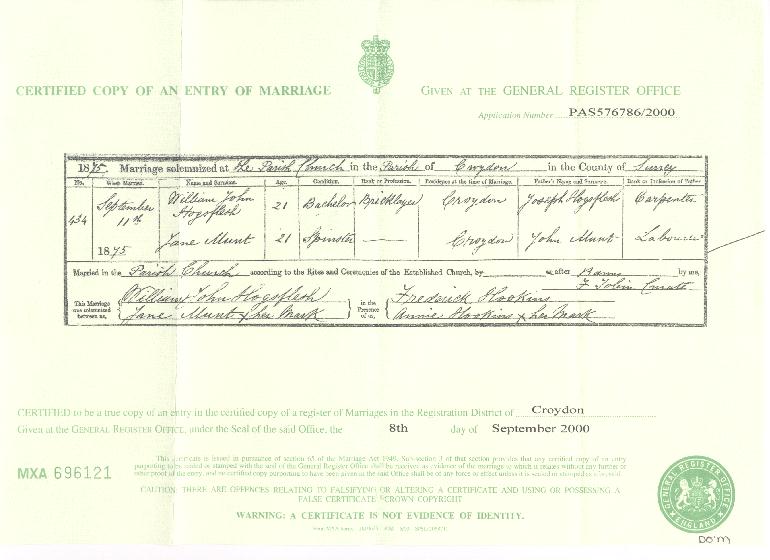 CERTIFIED COPY OF AN ENTRY OF MARRIAGE
GIVEN AT THE GENERAL REGISTER OFFICE
Application Number PAS576786/2000
1875. Marriage solemnized at the Parish Church in the Parish of Croydon in the County of Surrey
No. When Married. Name and Surname. Age. Condition. Rank or Profession. Residence at the time of Marriage. Father's Name and Surname. Rank or Profession of Father
434 September 11th 1875 William John Hogsflesh 21 Bachelor Bricklayer Croydon Joseph Hogsflesh Carpenter
Jane Munt 21 Spinster Croydon John Munt Labourer
Married in the Parish Church according to the Rites and Ceremonies of the Established Church, by or after Banns by me,
F Tobin Curate
This Marriage was solemnized between us, William John Hogsflesh
Jane Munt x her Mark
in the Presence of us, Frederick Hookins
Annie Hookins x her Mark
CERTIFIED to be a true copy of an entry in the certified copy of a register of Marriages in the Registration District of Croydon
Given at the GENERAL REGISTER OFFICE, under the Seal of the said Office, the 8th day of September 2000
MXA 696121
This certificate is issued in pursuance of section 65 of the Marriage Act 1949. Sub-section 3 of that section provides that any certified copy of an entry
purporting to be sealed or stamped with the seal of the General Register Office shall be received as evidence of the marriage to which it relates without any further or
other proof of the entry, and no certified copy purporting to have been given in the said Office shall be of any force or effect unless it is sealed or stamped as aforesaid.
CAUTION: THERE ARE OFFENCES RELATING TO FALSIFYING OR ALTERING A CERTIFICATE AND USING OR POSSESSING A
FALSE CERTIFICATE ©CROWN COPYRIGHT
WARNING: A CERTIFICATE IS NOT EVIDENCE OF IDENTITY.
GENERAL REGISTER OFFICE
ENGLAND